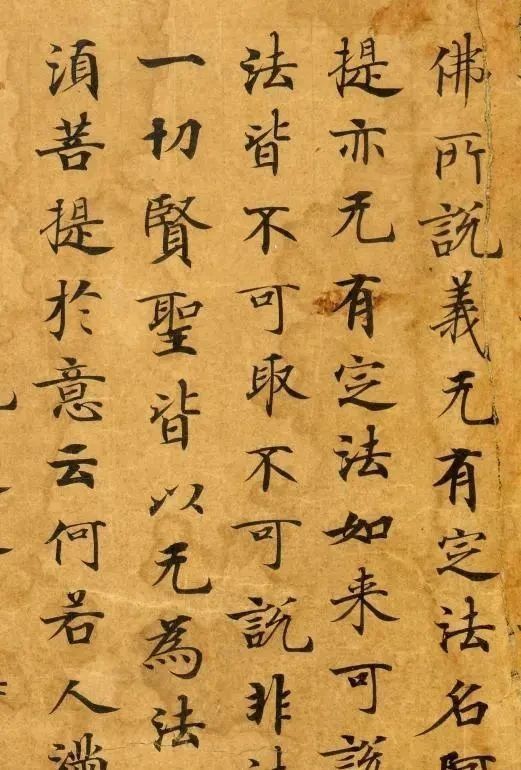 佛所說義无有定法名阿
提亦无有定法如来可說
法皆不可取不可說非法
一切賢聖皆以无為法
須菩提於意云何若人滿